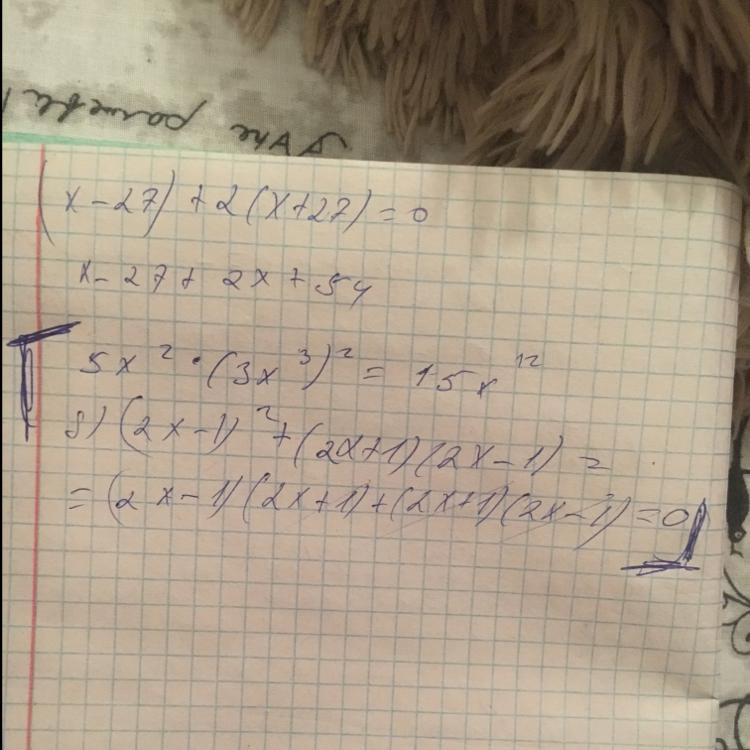 (x-27)+2(x+27)=0
x-27+2x+54
5x²·(3x³)²=15x¹²
б) (2x-1)²+(2x+1)(2x-1)=
=(2x-1)(2x+1)+(2x+1)(2x-1)=0